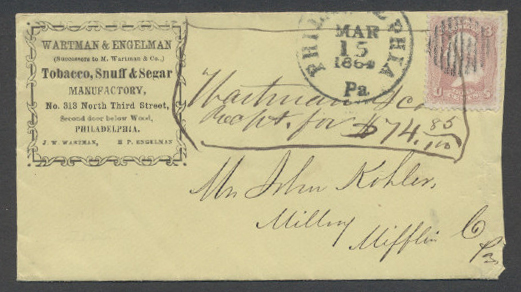 WARTMAN & ENGELMAN
(Successors to M. Wartman & Co.)
Tobacco, Snuff & Segar
MANUFACTORY,
No. 313 North Third Street,
Second door below Wood,
PHILADELPHIA.
J. W. WARTMAN, H P. ENGELMAN
PHILADELPHIA
MAR
15
1864
Pa
3 3
Wartman & Co.
Recpt. for $74.85/100
Mr John Kohler,
Mifflin Co
Pa